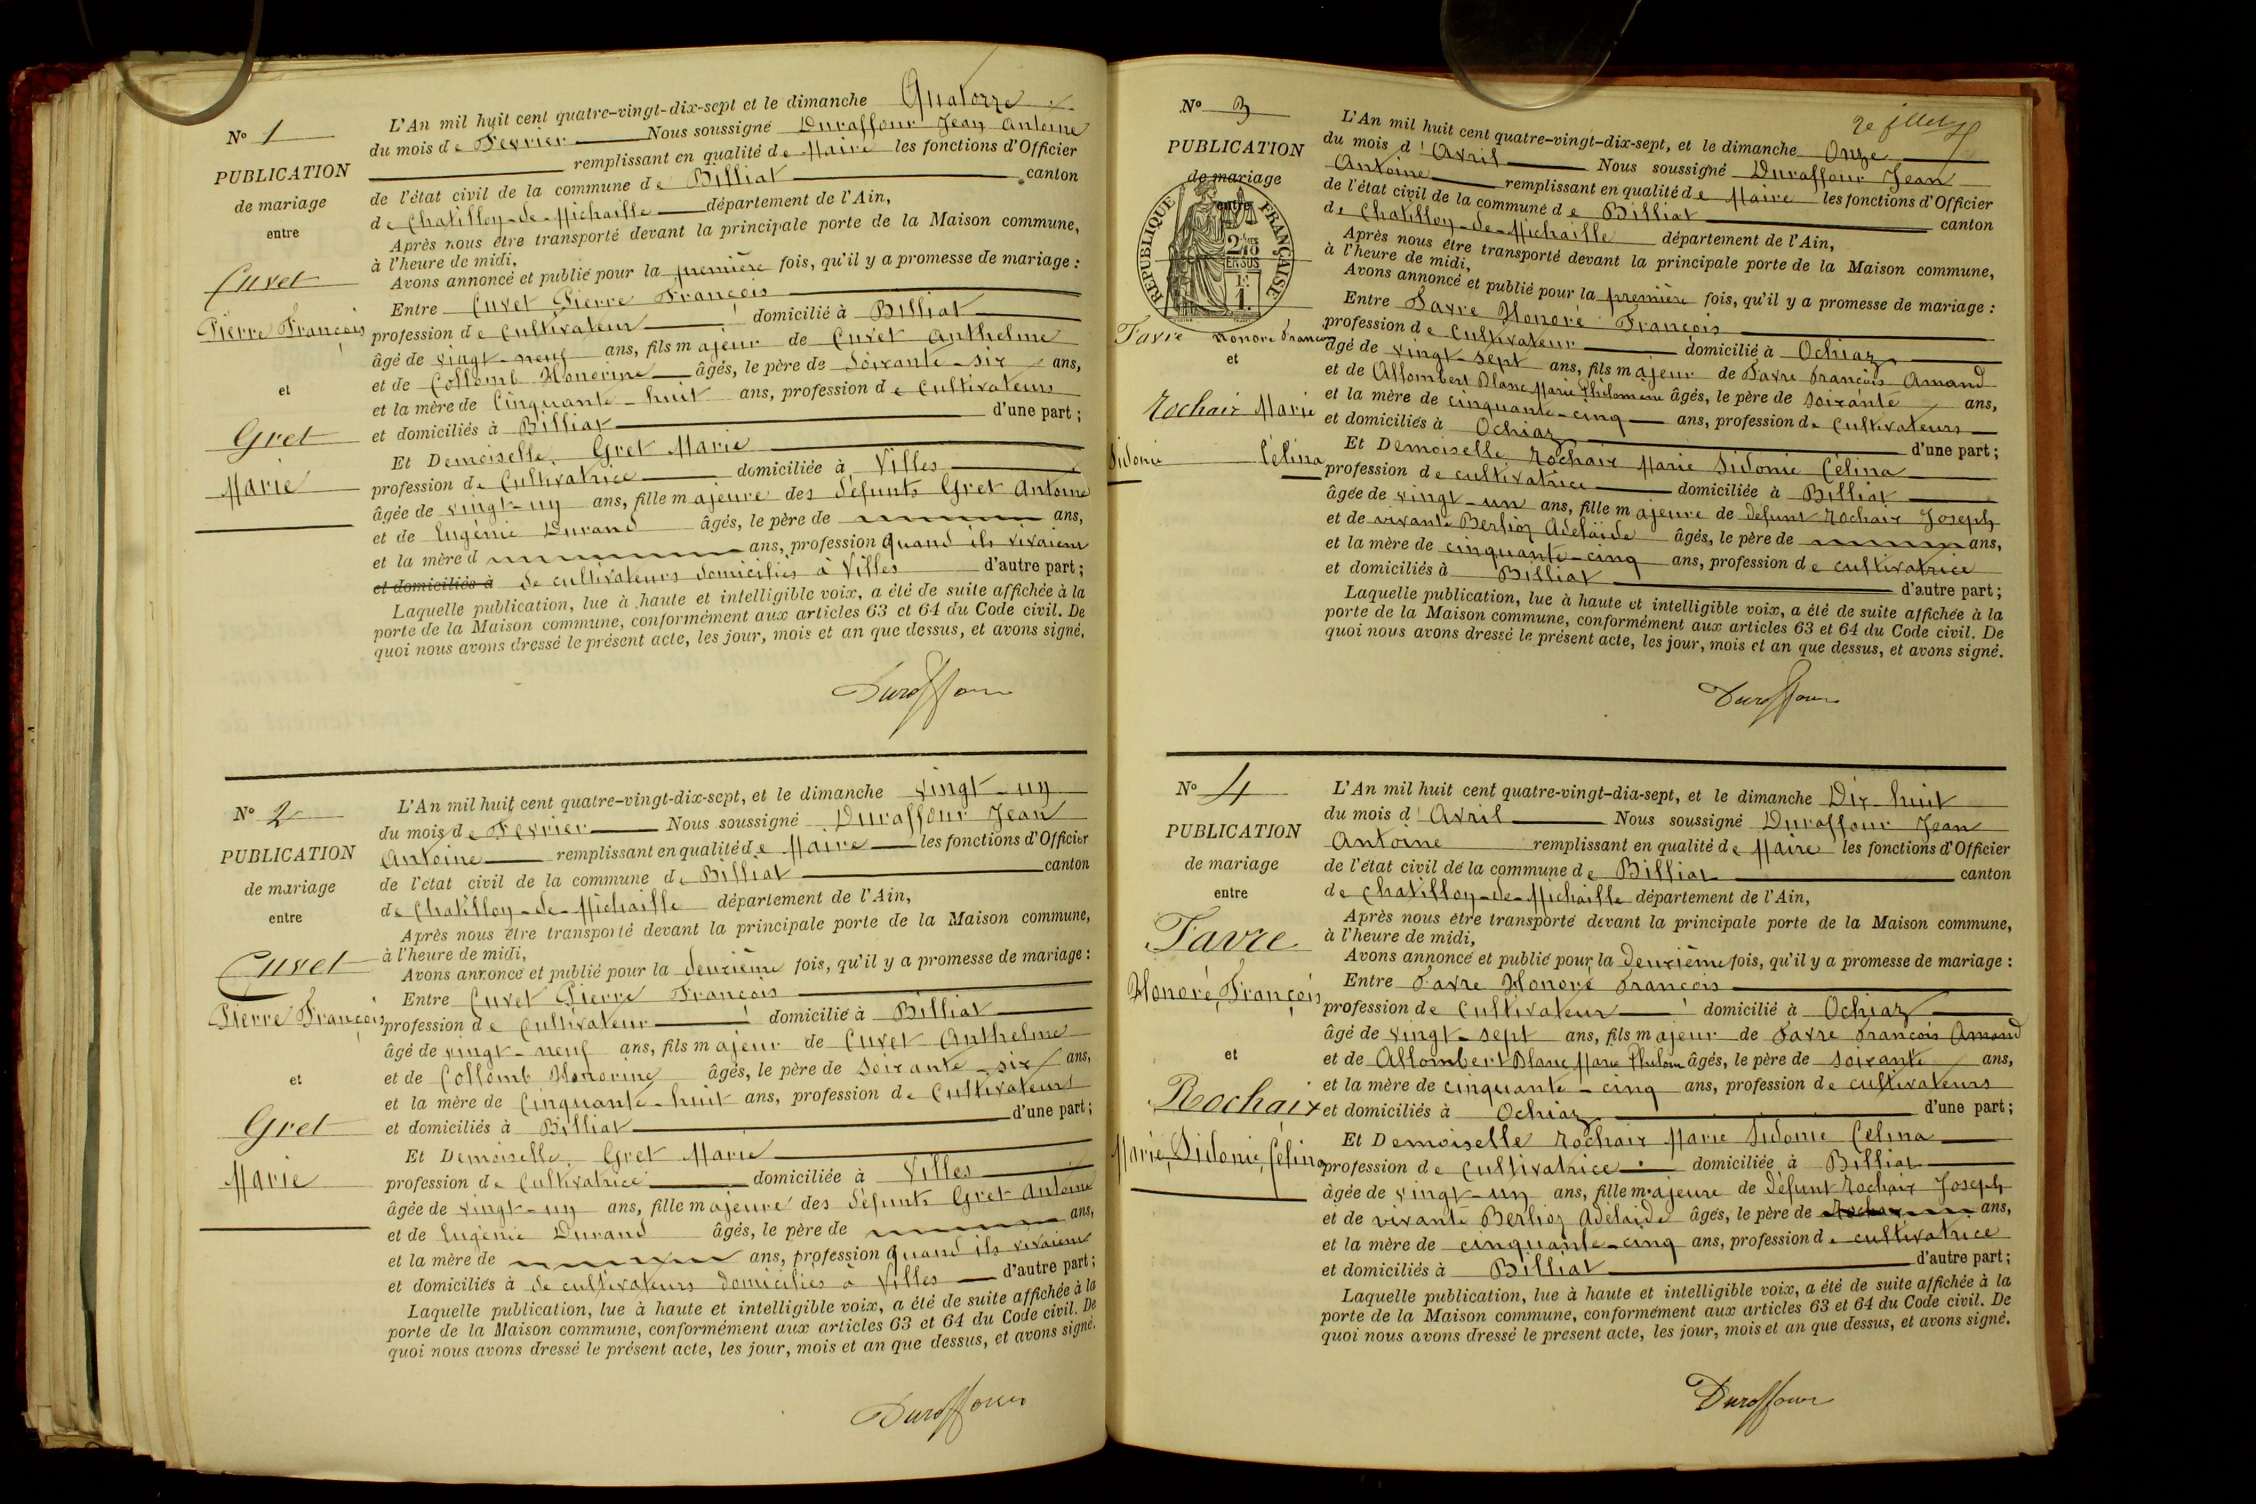 N° 1
PUBLICATION
de mariage
entre
Cuvet
Pierre François
et
Gret
Marie
L'An mil huit cent quatre-vingt-dix-sept et le dimanche Quatorze
du mois de Fevrier Nous soussigné Duraffour Jean Antoine
remplissant en qualité de Maire les fonctions d'Officier
de l'état civil de la commune de Billiat canton
de Chatillon-de-Michaille département de l'Ain,
Après nous être transporté devant la principale porte de la Maison commune,
à l'heure de midi,
Avons annoncé et publié pour la première fois, qu'il y a promesse de mariage :
Entre Cuvet Pierre François
profession de Cultivateur domicilié à Billiat
âgé de vingt-neuf ans, fils majeur de Cuvet Anthelme
et de Collomb Honorine âgés, le père de Soixante-six ans,
et la mère de Cinquante-huit ans, profession de Cultivateurs
et domiciliés à Billiat d'une part ;
Et Demoiselle Gret Marie
profession de Cultivatrice domiciliée à Villes
âgée de vingt-un ans, fille majeure des défunts Gret Antoine
et de Eugénie Durand âgés, le père de ans,
et la mère d ans, profession quand ils vivaient
et domiciliés à de cultivateurs domiciliés à Villes d'autre part ;
Laquelle publication, lue à haute et intelligible voix, a été de suite affichée à la
porte de la Maison commune, conformément aux articles 63 et 64 du Code civil. De
quoi nous avons dressé le présent acte, les jour, mois et an que dessus, et avons signé.
Duraffour
N° 2
PUBLICATION
de mariage
entre
Cuvet
Pierre François
et
Gret
Marie
L'An mil huit cent quatre-vingt-dix-sept, et le dimanche vingt-un
du mois de Fevrier Nous soussigné Duraffour Jean
Antoine remplissant en qualité de Maire les fonctions d'Officier
de l'état civil de la commune de Billiat canton
de Chatillon-de-Michaille département de l'Ain,
Après nous être transporté devant la principale porte de la Maison commune,
à l'heure de midi,
Avons annoncé et publié pour la deuxième fois, qu'il y a promesse de mariage :
Entre Cuvet Pierre François
profession de Cultivateur domicilié à Billiat
âgé de vingt-neuf ans, fils majeur de Cuvet Anthelme
et de Collomb Honorine âgés, le père de Soixante-six ans,
et la mère de Cinquante-huit ans, profession de Cultivateurs
et domiciliés à Billiat d'une part ;
Et Demoiselle Gret Marie
profession de Cultivatrice domiciliée à Villes
âgée de vingt-un ans, fille majeure des défunts Gret Antoine
et de Eugénie Durand âgés, le père de ans,
et la mère de ans, profession quand ils vivaient
et domiciliés à de cultivateurs domiciliés à Villes d'autre part ;
Laquelle publication, lue à haute et intelligible voix, a été de suite affichée à la
porte de la Maison commune, conformément aux articles 63 et 64 du Code civil. De
quoi nous avons dressé le présent acte, les jour, mois et an que dessus, et avons signé.
Duraffour
2e fllet
N° 3
PUBLICATION
de mariage
entre
RÉPUBLIQUE FRANÇAISE
EN SUS
Favre Honoré François
et
Rochaix Marie
Sidonie Célina
L'An mil huit cent quatre-vingt-dix-sept, et le dimanche Onze
du mois d'Avril Nous soussigné Duraffour Jean
Antoine remplissant en qualité de Maire les fonctions d'Officier
de l'état civil de la commune de Billiat canton
de Chatillon-de-Michaille département de l'Ain,
Après nous être transporté devant la principale porte de la Maison commune,
à l'heure de midi,
Avons annoncé et publié pour la première fois, qu'il y a promesse de mariage :
Entre Favre Honoré François
profession de Cultivateur domicilié à Ochiaz
âgé de vingt-sept ans, fils majeur de Favre François Amand
et de Allombert Blanc Marie Philomène âgés, le père de soixante ans,
et la mère de cinquante-cinq ans, profession de Cultivateurs
et domiciliés à Ochiaz d'une part ;
Et Demoiselle Rochaix Marie Sidonie Célina
profession de cultivatrice domiciliée à Billiat
âgée de vingt-un ans, fille majeure de défunt Rochaix Joseph
et de vivante Berlioz Adélaïde âgés, le père de ans,
et la mère de cinquante-cinq ans, profession de cultivatrice
et domiciliés à Billiat d'autre part ;
Laquelle publication, lue à haute et intelligible voix, a été de suite affichée à la
porte de la Maison commune, conformément aux articles 63 et 64 du Code civil. De
quoi nous avons dressé le présent acte, les jour, mois et an que dessus, et avons signé.
Duraffour
N° 4
PUBLICATION
de mariage
entre
Favre
Honoré, François
et
Rochaix
Marie, Sidonie, Célina
L'An mil huit cent quatre-vingt-dix-sept, et le dimanche Dix-huit
du mois d'Avril Nous soussigné Duraffour Jean
Antoine remplissant en qualité de Maire les fonctions d'Officier
de l'état civil de la commune de Billiat canton
de Chatillon-de-Michaille département de l'Ain,
Après nous être transporté devant la principale porte de la Maison commune,
à l'heure de midi,
Avons annoncé et publié pour la deuxième fois, qu'il y a promesse de mariage :
Entre Favre Honoré François
profession de Cultivateur domicilié à Ochiaz
âgé de vingt-sept ans, fils majeur de Favre François Amand
et de Allombert Blanc Marie Philom âgés, le père de soixante ans,
et la mère de cinquante-cinq ans, profession de cultivateurs
et domiciliés à Ochiaz d'une part ;
Et Demoiselle Rochaix Marie Sidonie Célina
profession de Cultivatrice domiciliée à Billiat
âgée de vingt-un ans, fille majeure de défunt Rochaix Joseph
et de vivante Berlioz Adélaide âgés, le père de ans,
et la mère de cinquante-cinq ans, profession de cultivatrice
et domiciliés à Billiat d'autre part ;
Laquelle publication, lue à haute et intelligible voix, a été de suite affichée à la
porte de la Maison commune, conformément aux articles 63 et 64 du Code civil. De
quoi nous avons dressé le présent acte, les jour, mois et an que dessus, et avons signé.
Duraffour